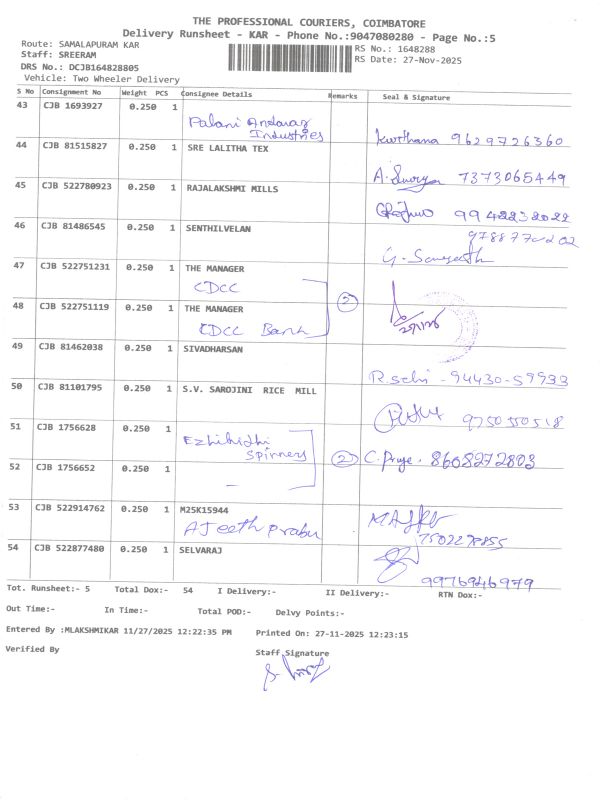 THE PROFESSIONAL COURIERS, COIMBATORE
Delivery Runsheet - KAR - Phone No.:9047080280 - Page No.:5
Route: SAMALAPURAM KAR
RS No.: 1648288
Staff: SREERAM
RS Date: 27-Nov-2025
DRS No.: DCJB164828805
Vehicle: Two Wheeler Delivery
S No Consignment No Weight PCS Consignee Details Remarks Seal & Signature
43 CJB 1693927 0.250 1
Palani Andavar
Industries
9629726360
44 CJB 81515827 0.250 1 SRE LALITHA TEX
A. Surya 7373065449
45 CJB 522780923 0.250 1 RAJALAKSHMI MILLS
9942232022
46 CJB 81486545 0.250 1 SENTHILVELAN
47 CJB 522751231 0.250 1 THE MANAGER
CDCC
2
48 CJB 522751119 0.250 1 THE MANAGER
CDCC Bank
49 CJB 81462038 0.250 1 SIVADHARSAN
R. Selvi - 94430-59933
50 CJB 81101795 0.250 1 S.V. SAROJINI RICE MILL
9750550518
51 CJB 1756628 0.250 1
Ezhilnidhi
Spinners
2 8608272803
52 CJB 1756652 0.250 1
53 CJB 522914762 0.250 1 M25K15944
AJeeth prabu
54 CJB 522877480 0.250 1 SELVARAJ
9976946979
Tot. Runsheet:- 5 Total Dox:- 54 I Delivery:- II Delivery:- RTN Dox:-
Out Time:- In Time:- Total POD:- Delvy Points:-
Entered By :MLAKSHMIKAR 11/27/2025 12:22:35 PM Printed On: 27-11-2025 12:23:15
Verified By
Staff Signature